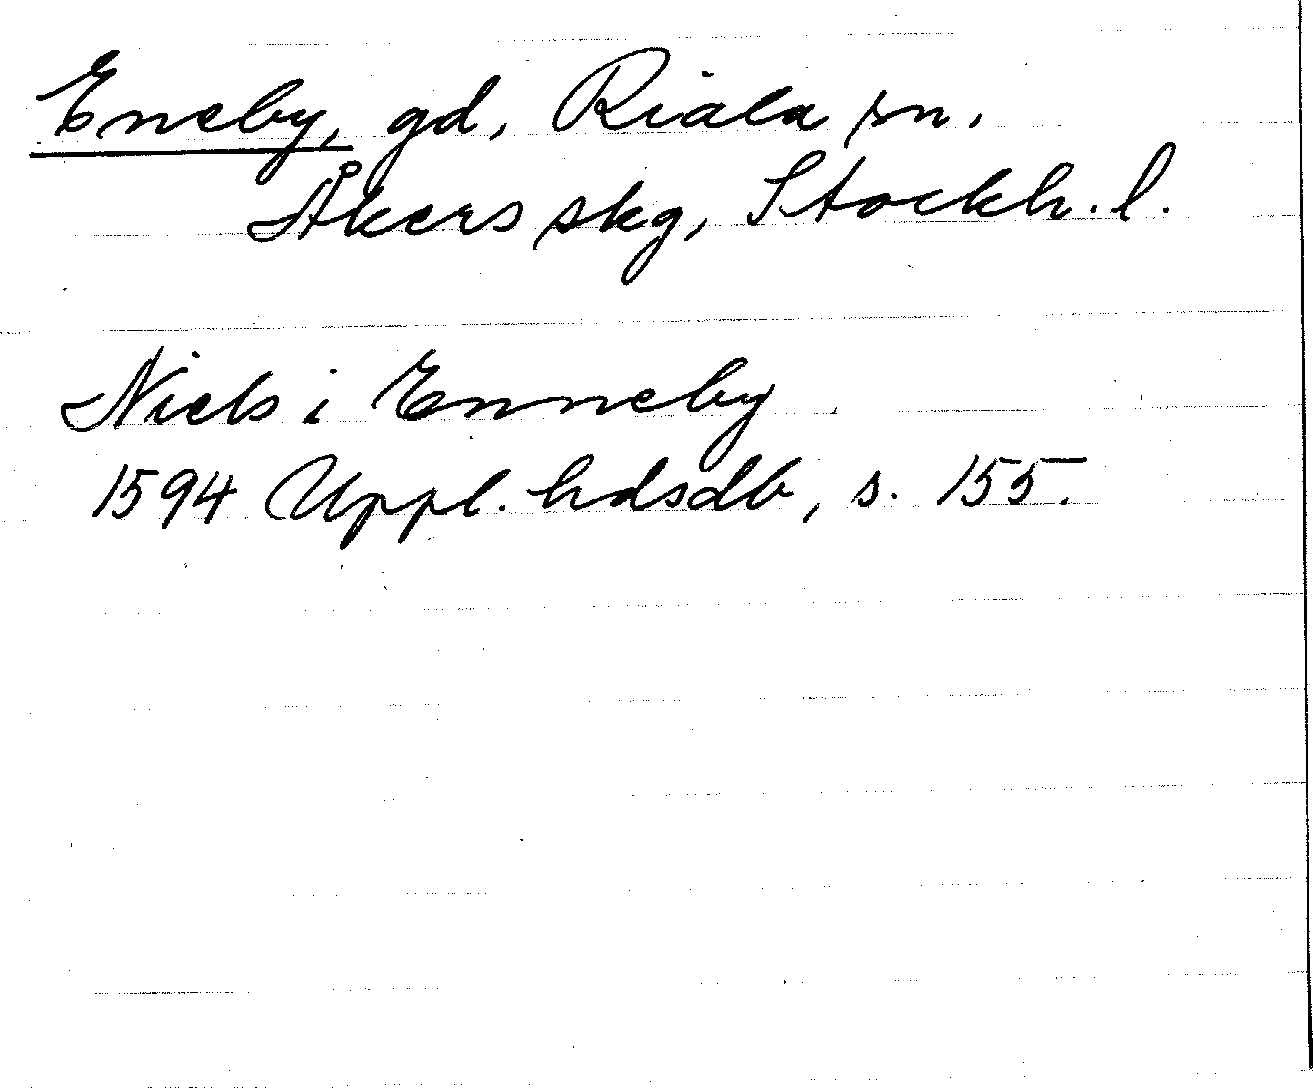 Eneby, gd, Riala sn.
Åkers skg, Stockh. l.
Niels i Enneby
1594 Uppl. hdsdb, s. 155.